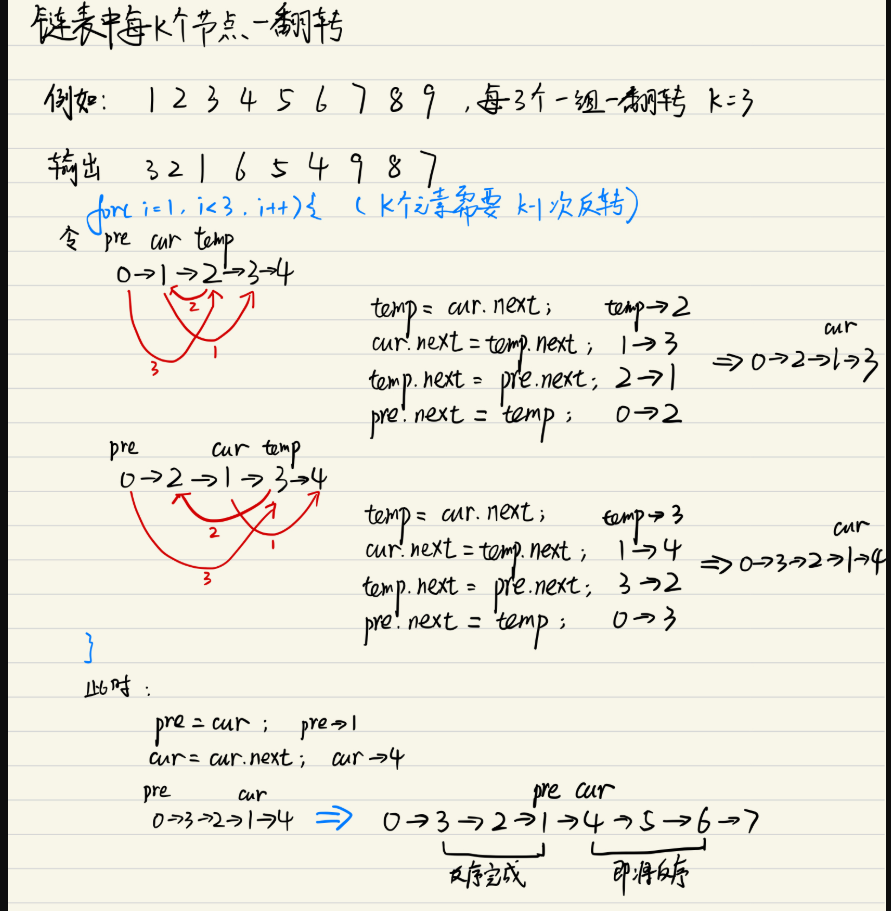 链表中每K个节点一翻转
例如: 1 2 3 4 5 6 7 8 9 ,每3个一组一翻转 k=3
输出 3 2 1 6 5 4 9 8 7
for( i=1, i<3, i++){ ( K个元素需要 k-1次反转)
令 pre cur temp
0→1→2→3→4
2
1
3
temp = cur.next; temp→2
cur.next = temp.next; 1→3
temp.next = pre.next; 2→1
pre.next = temp; 0→2
cur
⇒ 0→2→1→3
pre cur temp
0→2→1→3→4
2
1
3
temp = cur.next; temp→3
cur.next = temp.next; 1→4
temp.next = pre.next; 3→2
pre.next = temp; 0→3
cur
⇒ 0→3→2→1→4
}
此时:
pre = cur; pre→1
cur = cur.next; cur→4
pre cur
0→3→2→1→4 ⇒
pre cur
0→3→2→1→4→5→6→7
反序完成 即将反序